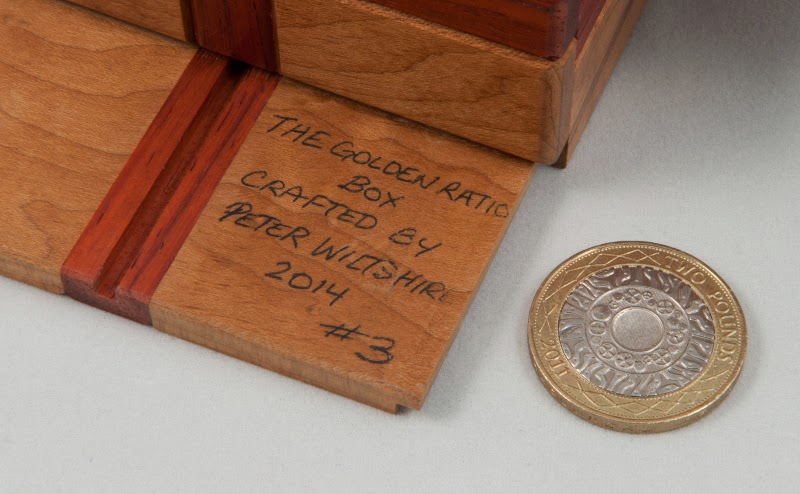 THE GOLDEN RATIO
BOX
CRAFTED BY
PETER WILTSHIRE
2014
#3
TWO POUNDS
2011